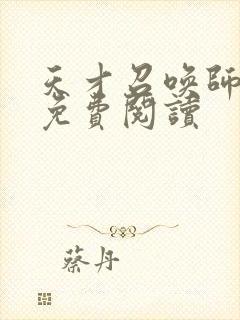 天才召喚師
免費閱讀
蔡丹